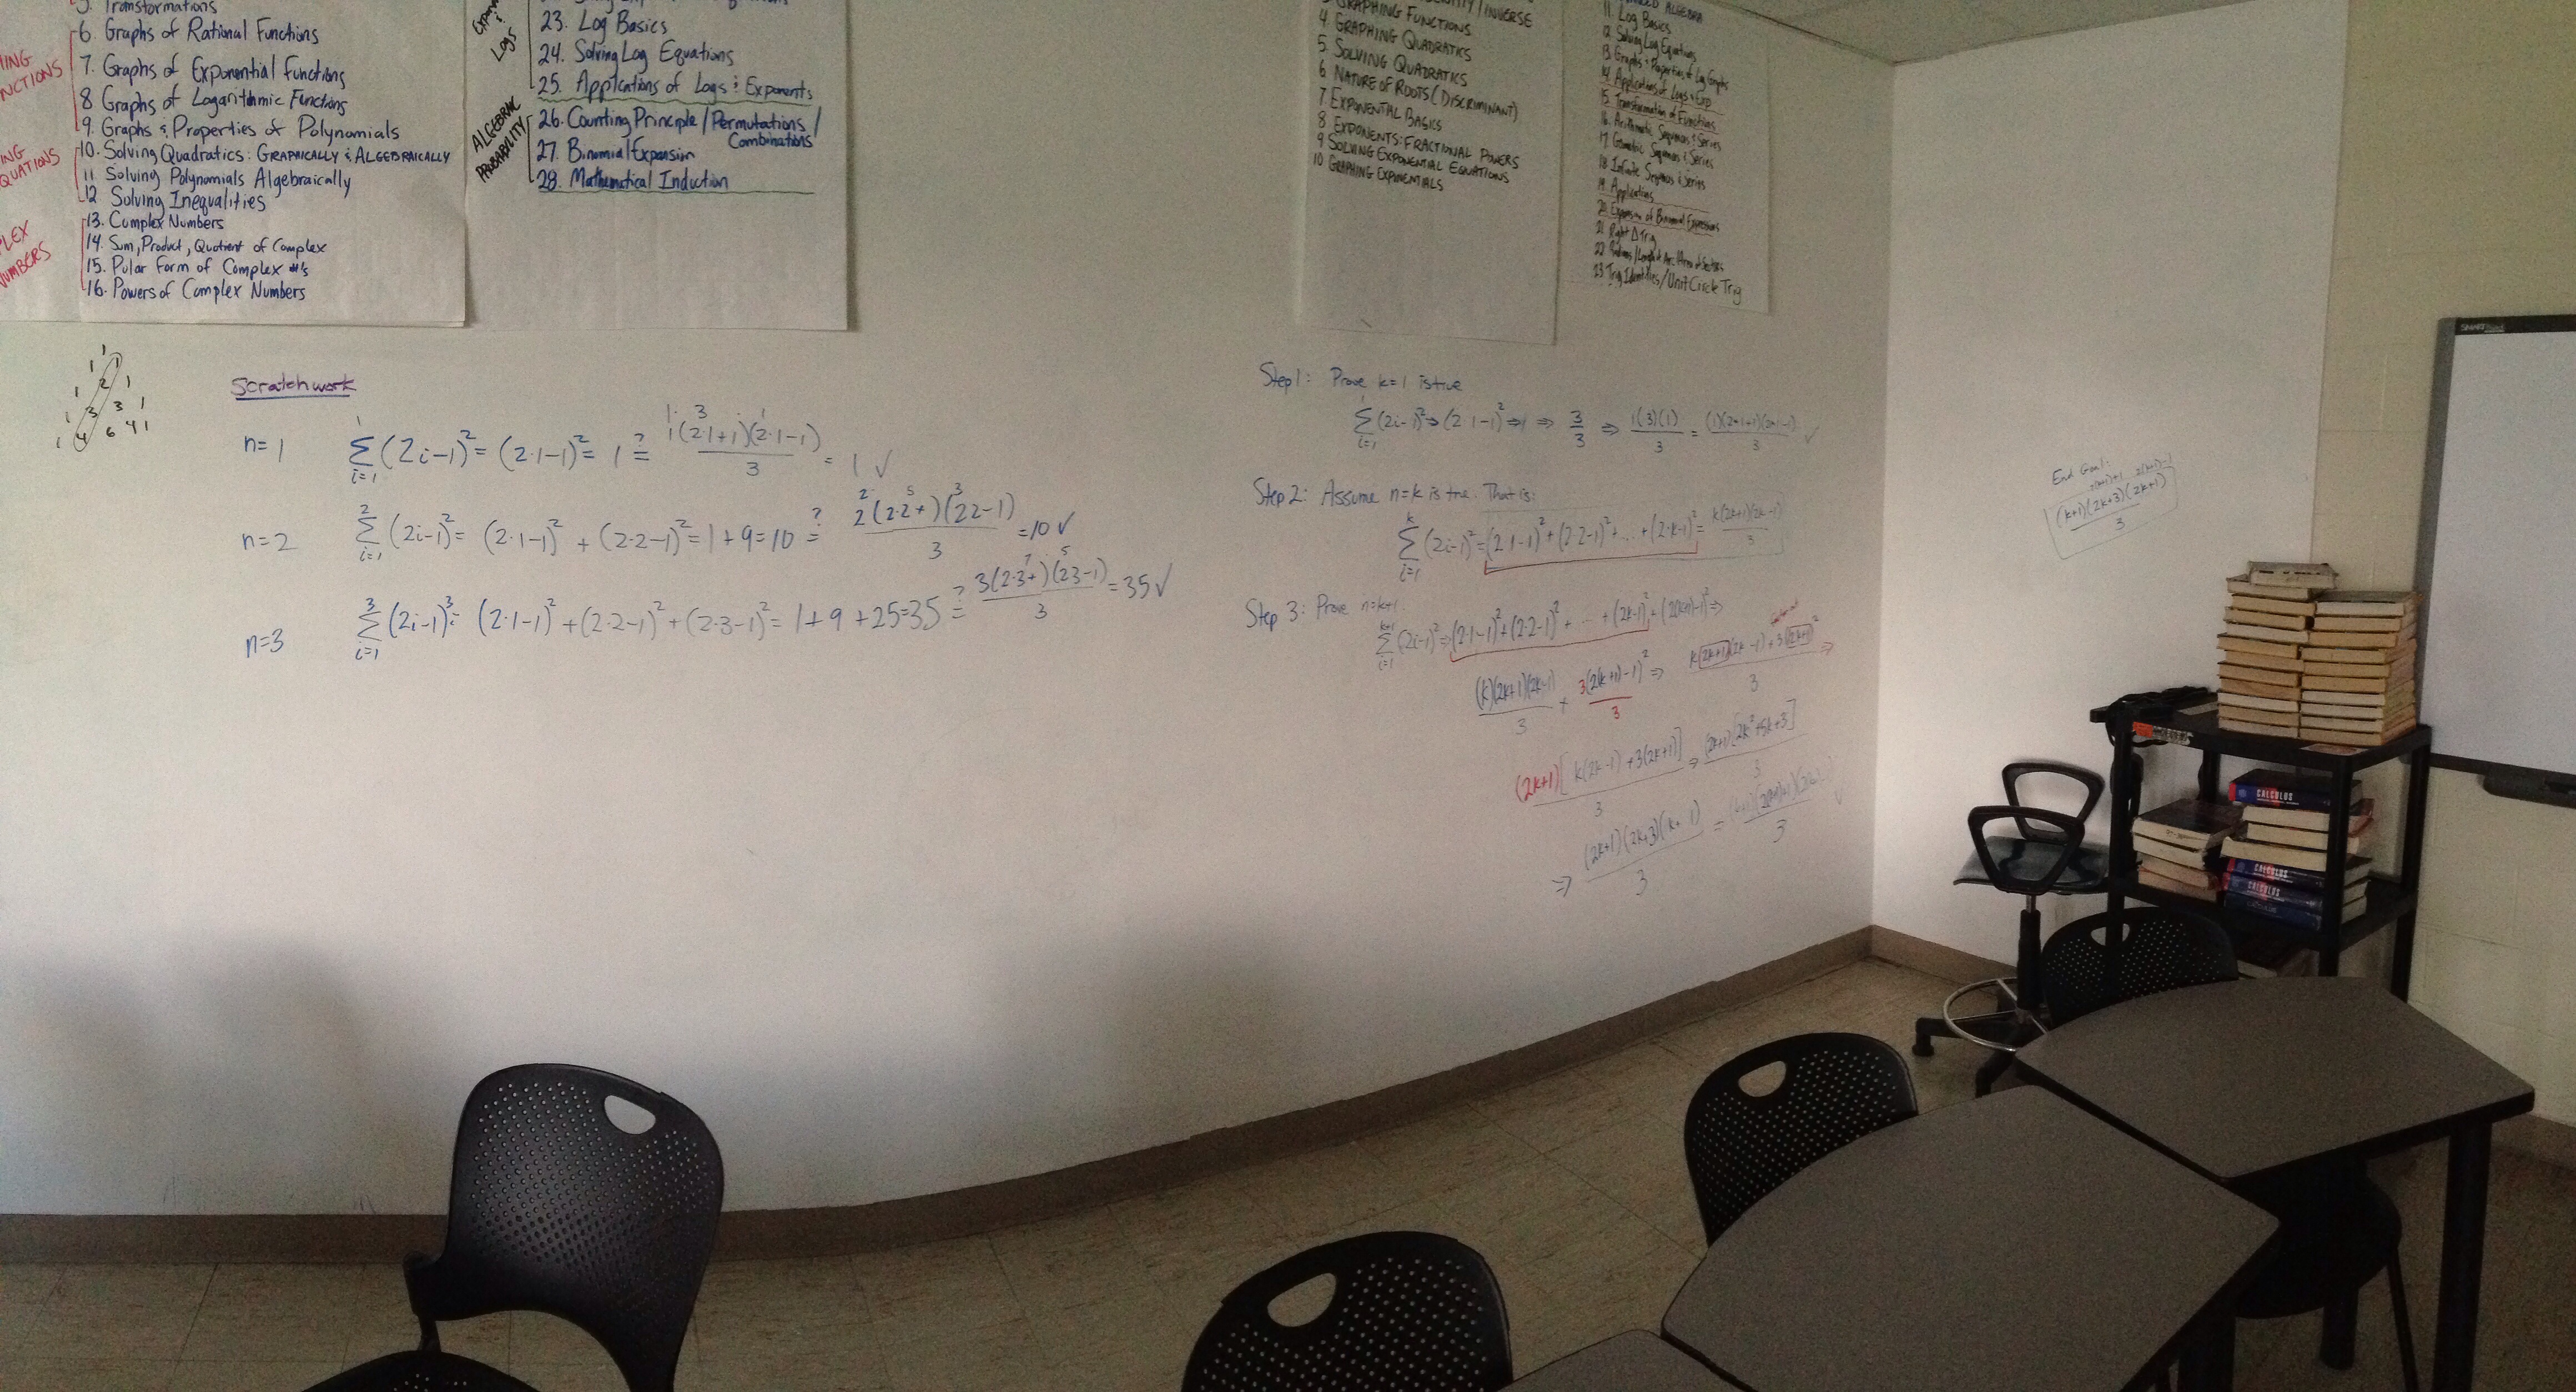 5. Transformations
6. Graphs of Rational Functions
7. Graphs of Exponential Functions
8 Graphs of Logarithmic Functions
9. Graphs & Properties of Polynomials
10. Solving Quadratics: GRAPHICALLY & ALGEBRAICALLY
11 Solving Polynomials Algebraically
12 Solving Inequalities
13. Complex Numbers
14. Sum, Product, Quotient of Complex
15. Polar Form of Complex #'s
16. Powers of Complex Numbers
Logs
23. Log Basics
24. Solving Log Equations
25. Applications of Logs & Exponents
ALGEBRAIC PROBABILITY
26. Counting Principle / Permutations /
Combinations
27. Binomial Expansion
28. Mathematical Induction
/ INVERSE
GRAPHING FUNCTIONS
4. GRAPHING QUADRATICS
5. SOLVING QUADRATICS
6 NATURE OF ROOTS (DISCRIMINANT)
7 EXPONENTIAL BASICS
8 EXPONENTS: FRACTIONAL POWERS
9 SOLVING EXPONENTIAL EQUATIONS
10 GRAPHING EXPONENTIALS
ALGEBRA
11. Log Basics
12 Solving Log Equations
13 Graphs & Properties of Log Graphs
14 Applications of Logs & Exp
15 Transformation of Functions
16. Arithmetic Sequences & Series
17 Geometric Sequences & Series
18 Infinite Sequences & Series
19 Applications
20. Expansion of Binomial Expressions
21 Right Δ Trig
22
23 Trig Identities / Unit Circle Trig
1
1 1
1 2 1
1 3 3 1
1 4 6 4 1
Scratchwork
n=1 1 Σ i=1 (2i-1)² = (2·1-1)² = 1 ?= 1(2·1+1)(2·1-1)/3 = 1 ✓
n=2 2 Σ i=1 (2i-1)² = (2·1-1)² + (2·2-1)² = 1+9=10 ?= 2(2·2+)(2·2-1)/3 = 10 ✓
n=3 3 Σ i=1 (2i-1)³ = (2·1-1)² + (2·2-1)² + (2·3-1)² = 1+9+25=35 ?= 3(2·3+)(2·3-1)/3 = 35 ✓
Step 1: Prove k=1 is true
1 Σ i=1 (2i-1)² ⇒ (2·1-1)² ⇒ 1 ⇒ 3/3 ⇒ 1(3)(1)/3 = (1)(2·1+1)(2·1-1)/3 ✓
Step 2: Assume n=k is true. That is:
k Σ i=1 (2i-1)² = (2·1-1)² + (2·2-1)² + ... + (2·k-1)² = k(2k+1)(2k-1)/3
Step 3: Prove n=k+1.
k+1 Σ i=1 (2i-1)² = (2·1-1)² + (2·2-1)² + ... + (2k-1)² + (2(k+1)-1)² ⇒
(k)(2k+1)(2k-1)/3 + 3(2(k+1)-1)²/3 ⇒ k(2k+1)(2k-1)+3(2k+1)²/3 ⇒
(2k+1)[k(2k-1)+3(2k+1)]/3 ⇒ (2k+1)[2k²+5k+3]/3
⇒ (2k+1)(2k+3)(k+1)/3 =
End Goal:
2(k+1)+1 2(k+1)-1
(k+1)(2k+3)(2k+1)/3
SMART Board
CALCULUS
CALCULUS
CALCULUS
CALCULUS